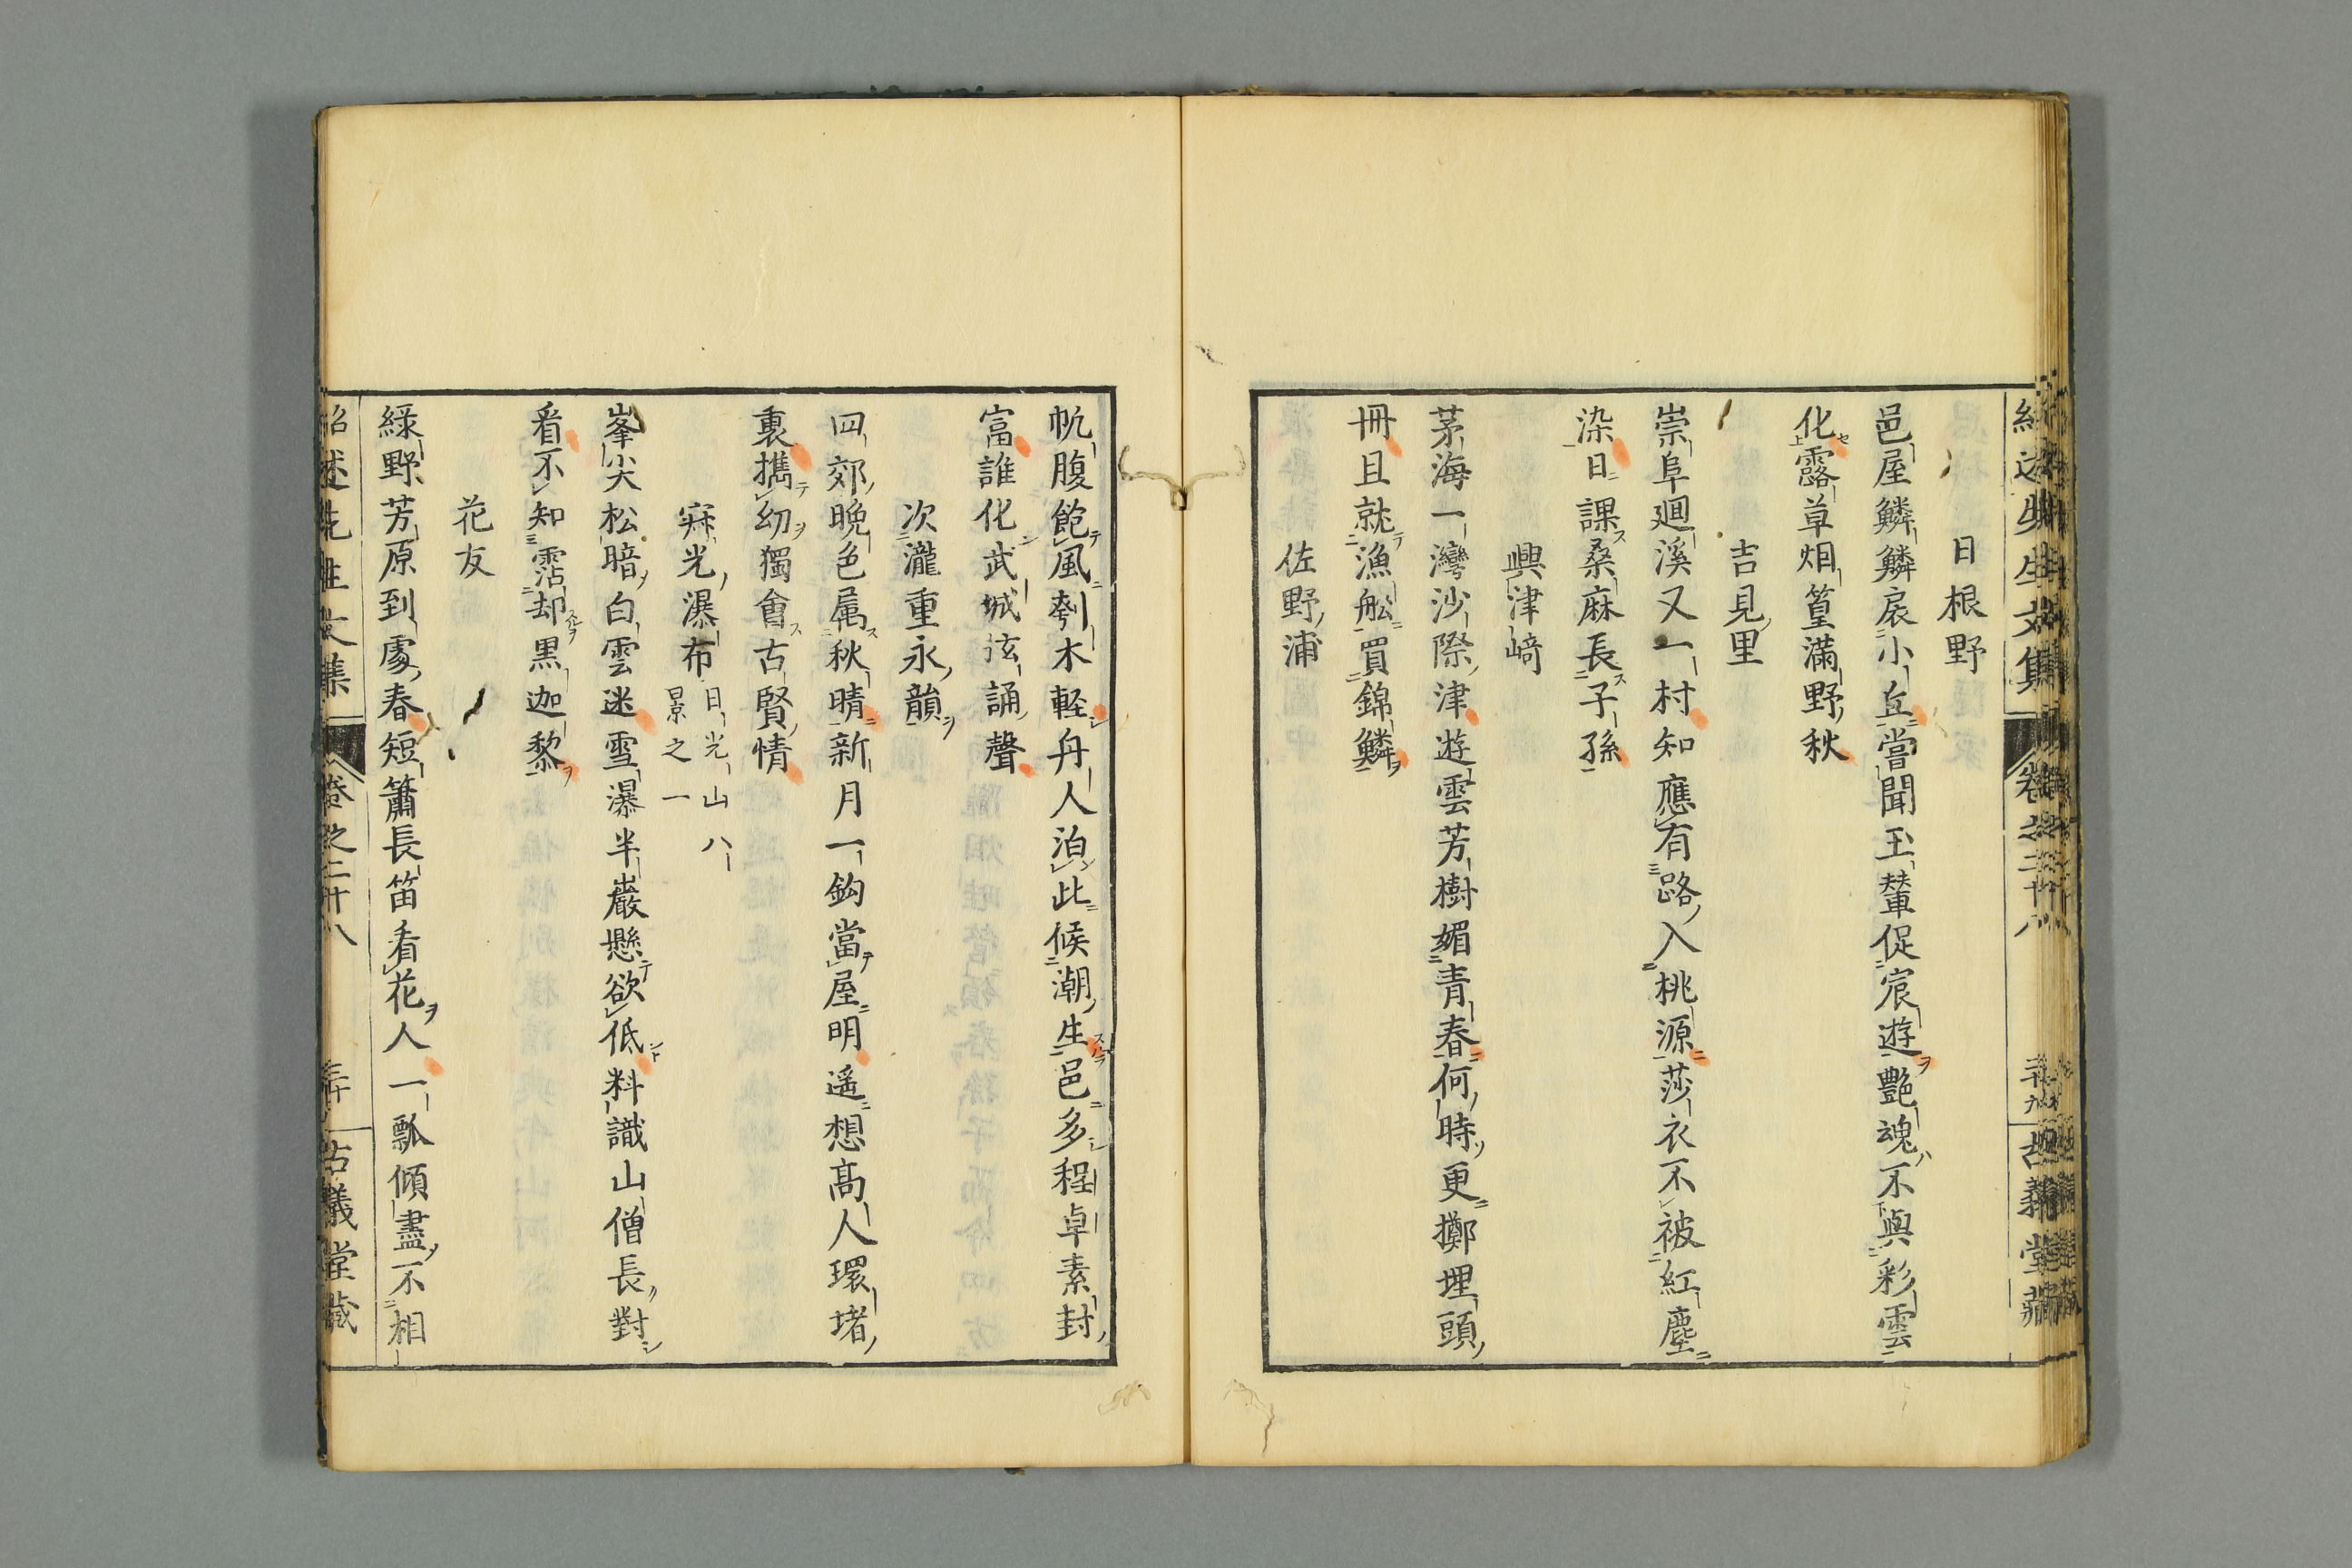 日根野
邑屋鱗鱗扆小丘嘗聞玉輦促宸遊艷魂不與彩雲
化露草烟篁滿野秋
吉見里
崇阜廻溪又一村知應有路入桃源莎衣不被紅塵
染日課桑麻長子孫
興津﨑
茅海一灣沙際津遊雲芳樹媚青春何時更擲埋頭
冊且就漁舩買錦鱗
佐野浦
帆腹飽風刳木軽舟人泊此候潮生邑多程卓素封
冨誰化武城弦誦聲
次瀧重永韻
四郊晚色属秋晴新月一鈎當屋明遥想髙人環堵
裏攜幼獨會古賢情
寐光瀑布
日光山八
景之一
峯尖松暗白雲迷雪瀑半巖懸欲低料識山僧長對
看不知霑却黒迦黎
花友
緑野芳原到處春短簫長笛看花人一瓢傾盡不相
紹述先生文集
卷之二十八
三十
古義堂藏